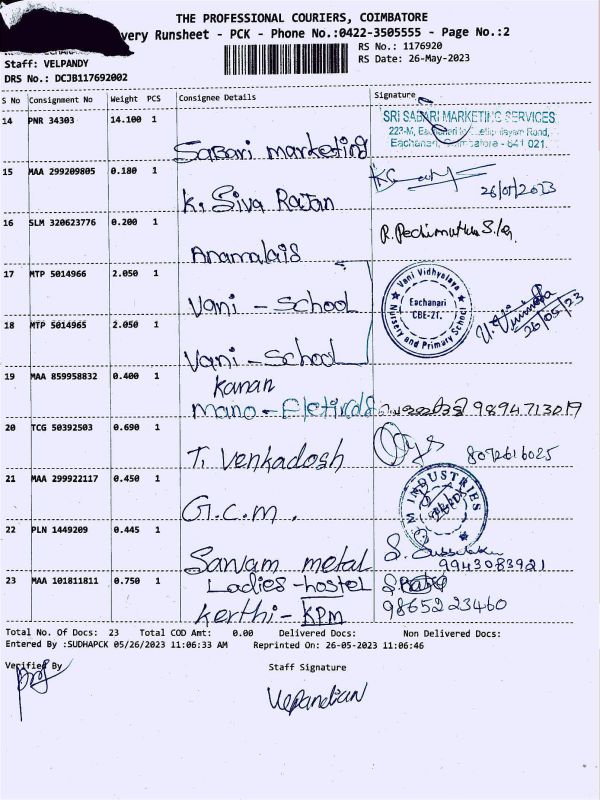 THE PROFESSIONAL COURIERS, COIMBATORE
very Runsheet - PCK - Phone No.:0422-3505555 - Page No.:2
RS No.: 1176920
Staff: VELPANDY
RS Date: 26-May-2023
DRS No.: DCJB117692002
S No Consignment No Weight PCS Consignee Details Signature
14 PNR 34303 14.100 1
SRI SABARI MARKETING SERVICES
223-M, Road,
Eachanari, Coimbatore - 641 021.
Sabari marketing
15 MAA 299209805 0.180 1
K. Siva Rajan
26/05/2023
16 SLM 320623776 0.200 1
Anamalais
17 MTP 5014966 2.050 1
Vani - School
Vani Vidhyalaya
Eachanari
CBE-21.
Nursery and Primary School
26/05/23
18 MTP 5014965 2.050 1
Vani - School
19 MAA 859958832 0.400 1
Kanan
Mano - 9894713019
20 TCG 50392503 0.690 1
T. Venkadosh
8072616025
21 MAA 299922117 0.450 1
G.C.M.
M INDUSTRIES
22 PLN 1449209 0.445 1
Sarvam metal
9943083921
23 MAA 101811811 0.750 1
Ladies - hostel
Kerthi - KPM
9865223460
Total No. Of Docs: 23 Total COD Amt: 0.00 Delivered Docs: Non Delivered Docs:
Entered By :SUDHAPCK 05/26/2023 11:06:33 AM Reprinted On: 26-05-2023 11:06:46
Verified By
Staff Signature
Velpandian